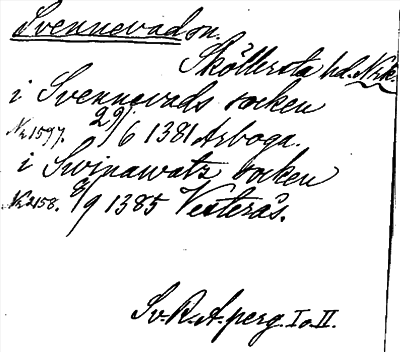 Svennevadsn.
Sköllersta hd. Nrk.
i Svennevads socken
No 1597. 29/6 1381 Arboga.
i Swinawatz socken
No 2158. 8/9 1385 Vesterås.
Sv. R. A. perg. I o. II.